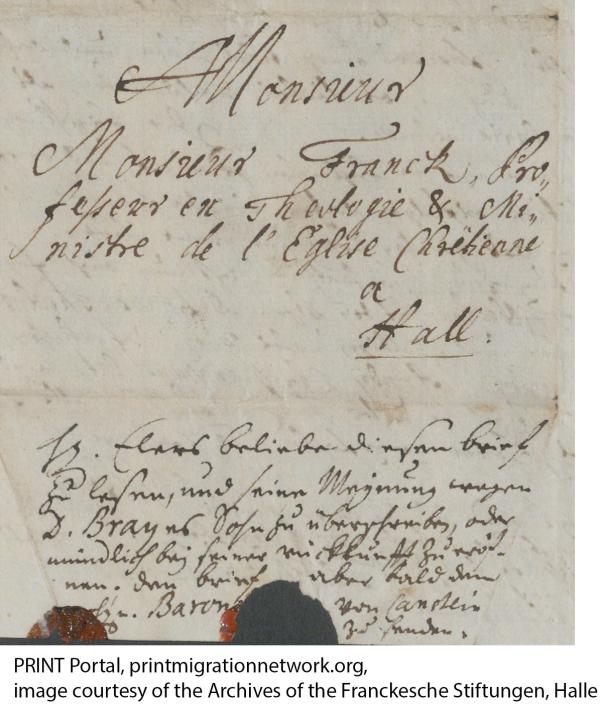 Monsieur
Monsieur Franck, Pro„
feſseur en Theologie & Mi„
nistre de l'Eglise Chrêtienne
a
Hall.
H. Elers beliebe diesen brief
zu lesen, und seine Meynung wegen
D. Brayes Sohn zu überschreiben, oder
mündlich bei seiner rückkunfft zu eröf-
nen. den brief aber bald dem
Hn. Baron von Canstein
zu senden.
PRINT Portal, printmigrationnetwork.org,
image courtesy of the Archives of the Franckesche Stiftungen, Halle